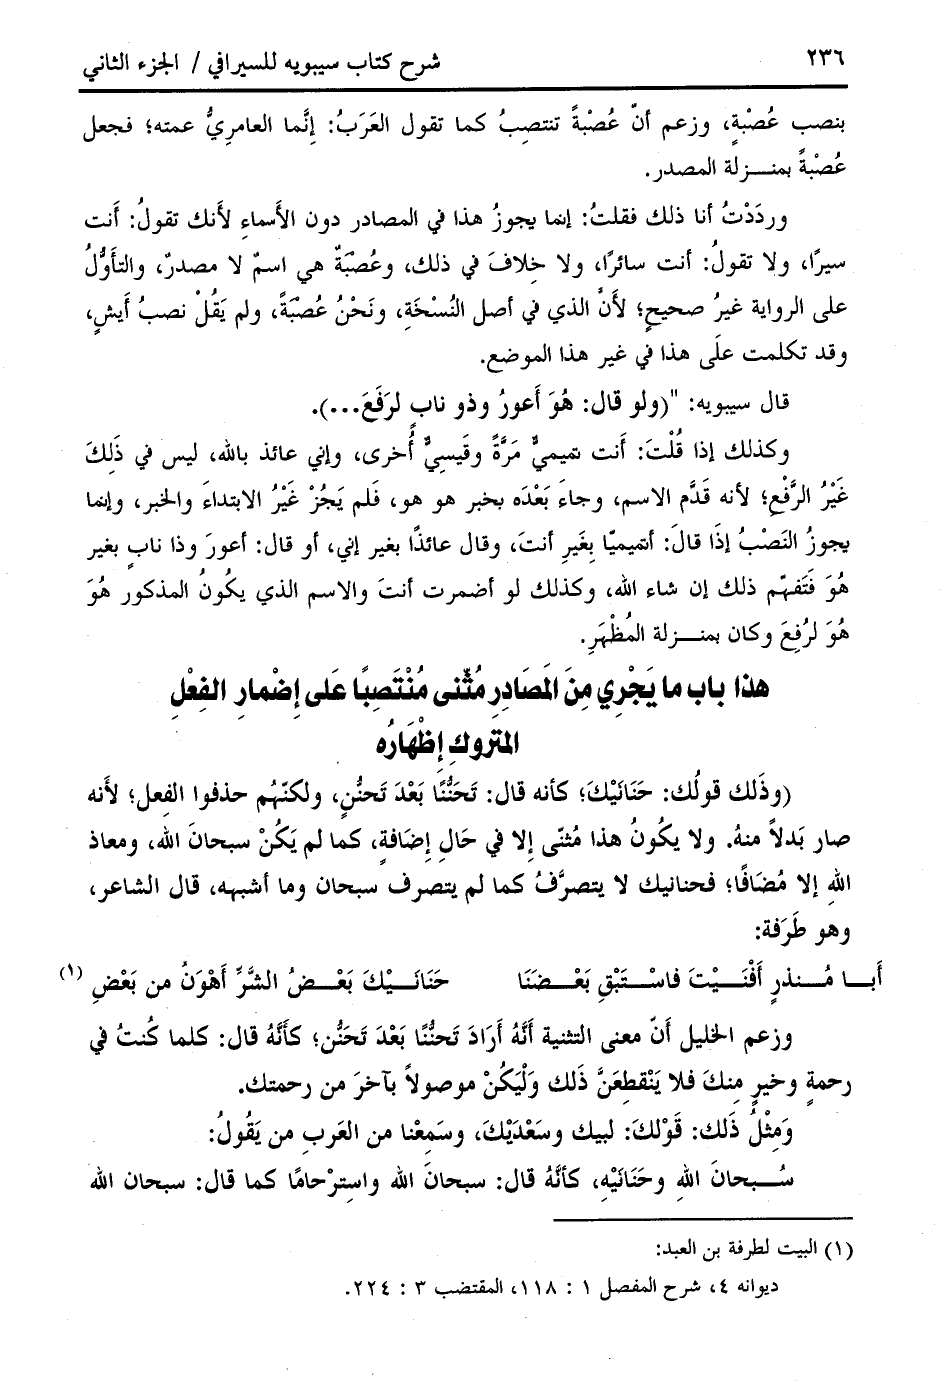 ٢٣٦ شرح كتاب سيبويه للسيرافي / الجزء الثاني
بنصب عُصْبَةٍ، وزعم أنّ عُصْبَةً تنتصِبُ كما تقول العَرَبُ: إنَّما العامرِيُّ عمته؛ فجعل
عُصْبَةً بمنـزلة المصدر.
وردَدْتُ أنا ذلك فقلتُ: إنما يجوزُ هذا في المصادر دون الأسماءِ لأنك تقولُ: أنت
سيرًا، ولا تقولُ: أنت سائرًا، ولا خلافَ في ذلك، وعُصبَةٌ هي اسمٌ لا مصدرٌ، والتأوُّلُ
على الرواية غيرُ صحيحٍ؛ لأنَّ الذي في أصل النُسْخَةِ، ونَحْنُ عُصبَةً، ولم يَقُلْ نصبُ أيشٍ،
وقد تكلمت علَى هذا في غير هذا الموضع.
قال سيبويه: "(ولو قال: هُوَ أَعورُ وذو نابٍ لرَفَعَ...).
وكذلك إذا قُلْتَ: أنت تميميٌّ مَرَّةً وقَيسِيٌّ أُخرى، وإني عائذ بالله، ليس في ذَلكَ
غَيْرُ الرَّفْعِ؛ لأنه قَدَّم الاسم، وجاءَ بَعْدَه بخبر هو هو، فلم يَجُزْ غَيْرُ الابتداءَ والخبر، وإنما
يجوزُ النَصْبُ إذَا قالَ: أتميميًا بغَيرِ أنتَ، وقال عائذًا بغير إني، أو قال: أعورَ وذا نابٍ بغير
هُوَ فَتَفهّم ذلك إن شاء الله، وكذلك لو أضمرت أنتَ والاسم الذي يكُونُ المذكور هُوَ
هُوَ لرُفِعَ وكان بمنـزلة المُظْهَرِ.
هذا باب ما يَجْري مِنَ المَصَادِرِ مُثَنّى مُنْتَصِبًا عَلى إضْمار الفِعْلِ
المتروكِ إظْهَارُه
(وذَلك قولُك: حَنَانَيْكَ؛ كأنه قال: تَحَنُّنًا بَعْدَ تَحنُّنٍ، ولكنّهُم حذفوا الفِعل؛ لأنه
صار بَدلاً منهُ. ولا يكُونُ هذا مُثنّى إلا في حَالِ إضَافةٍ، كما لم يَكُنْ سبحانَ الله، ومعاذ
اللهِ إلا مُضَافًا؛ فحنانيك لا يتصرَّفُ كما لم يتصرف سبحان وما أشبهه، قال الشاعر،
وهو طَرَفة:
أَبـا مُـنذرٍ أَفْنَيْـتَ فاسْـتَبْقِ بَعْـضَنَا حَنَانَـيْكَ بَعْـضُ الشَّرِّ أَهْوَنُ من بَعْضِ (١)
وزعم الخليل أَنّ معنى التثنية أَنَّهُ أَرَادَ تَحنُّنًا بَعْدَ تَحَنُّن؛ كأنَّهُ قال: كلما كُنتُ في
رحمةٍ وخيرٍ مِنكَ فلا يَنْقطِعَنَّ ذلك وَلْيَكُنْ موصولاً بآخرَ من رحمتك.
وَمِثْلُ ذَلكَ: قَوْلكَ: لبيك وسَعْدَيْكَ، وسَمِعْنا من العَربِ من يَقُولُ:
سُـبحانَ اللهِ وحَنَانَيْهِ، كأنَّهُ قال: سبحانَ الله واسترْحامًا كما قال: سبحان الله
(١) البيت لطرفة بن العبد:
ديوانه ٤، شرح المفصل ١ : ١١٨، المقتضب ٣ : ٢٢٤.